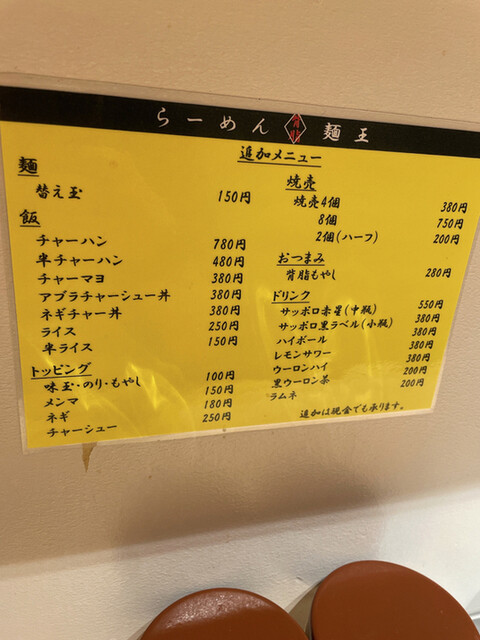 らーめん 麺王
追加メニュー
麺
替え玉 150円
飯
チャーハン 780円
半チャーハン 480円
チャーマヨ 380円
アブラチャーシュー丼 380円
ネギチャー丼 380円
ライス 250円
半ライス 150円
トッピング
味玉・のり・もやし 100円
メンマ 150円
ネギ 180円
チャーシュー 250円
焼売
焼売4個 380円
8個 750円
2個(ハーフ) 200円
おつまみ
背脂もやし 280円
ドリンク
サッポロ赤星(中瓶) 550円
サッポロ黒ラベル(小瓶) 380円
ハイボール 380円
レモンサワー 380円
ウーロンハイ 380円
黒ウーロン茶 200円
ラムネ 200円
追加は現金でも承ります。